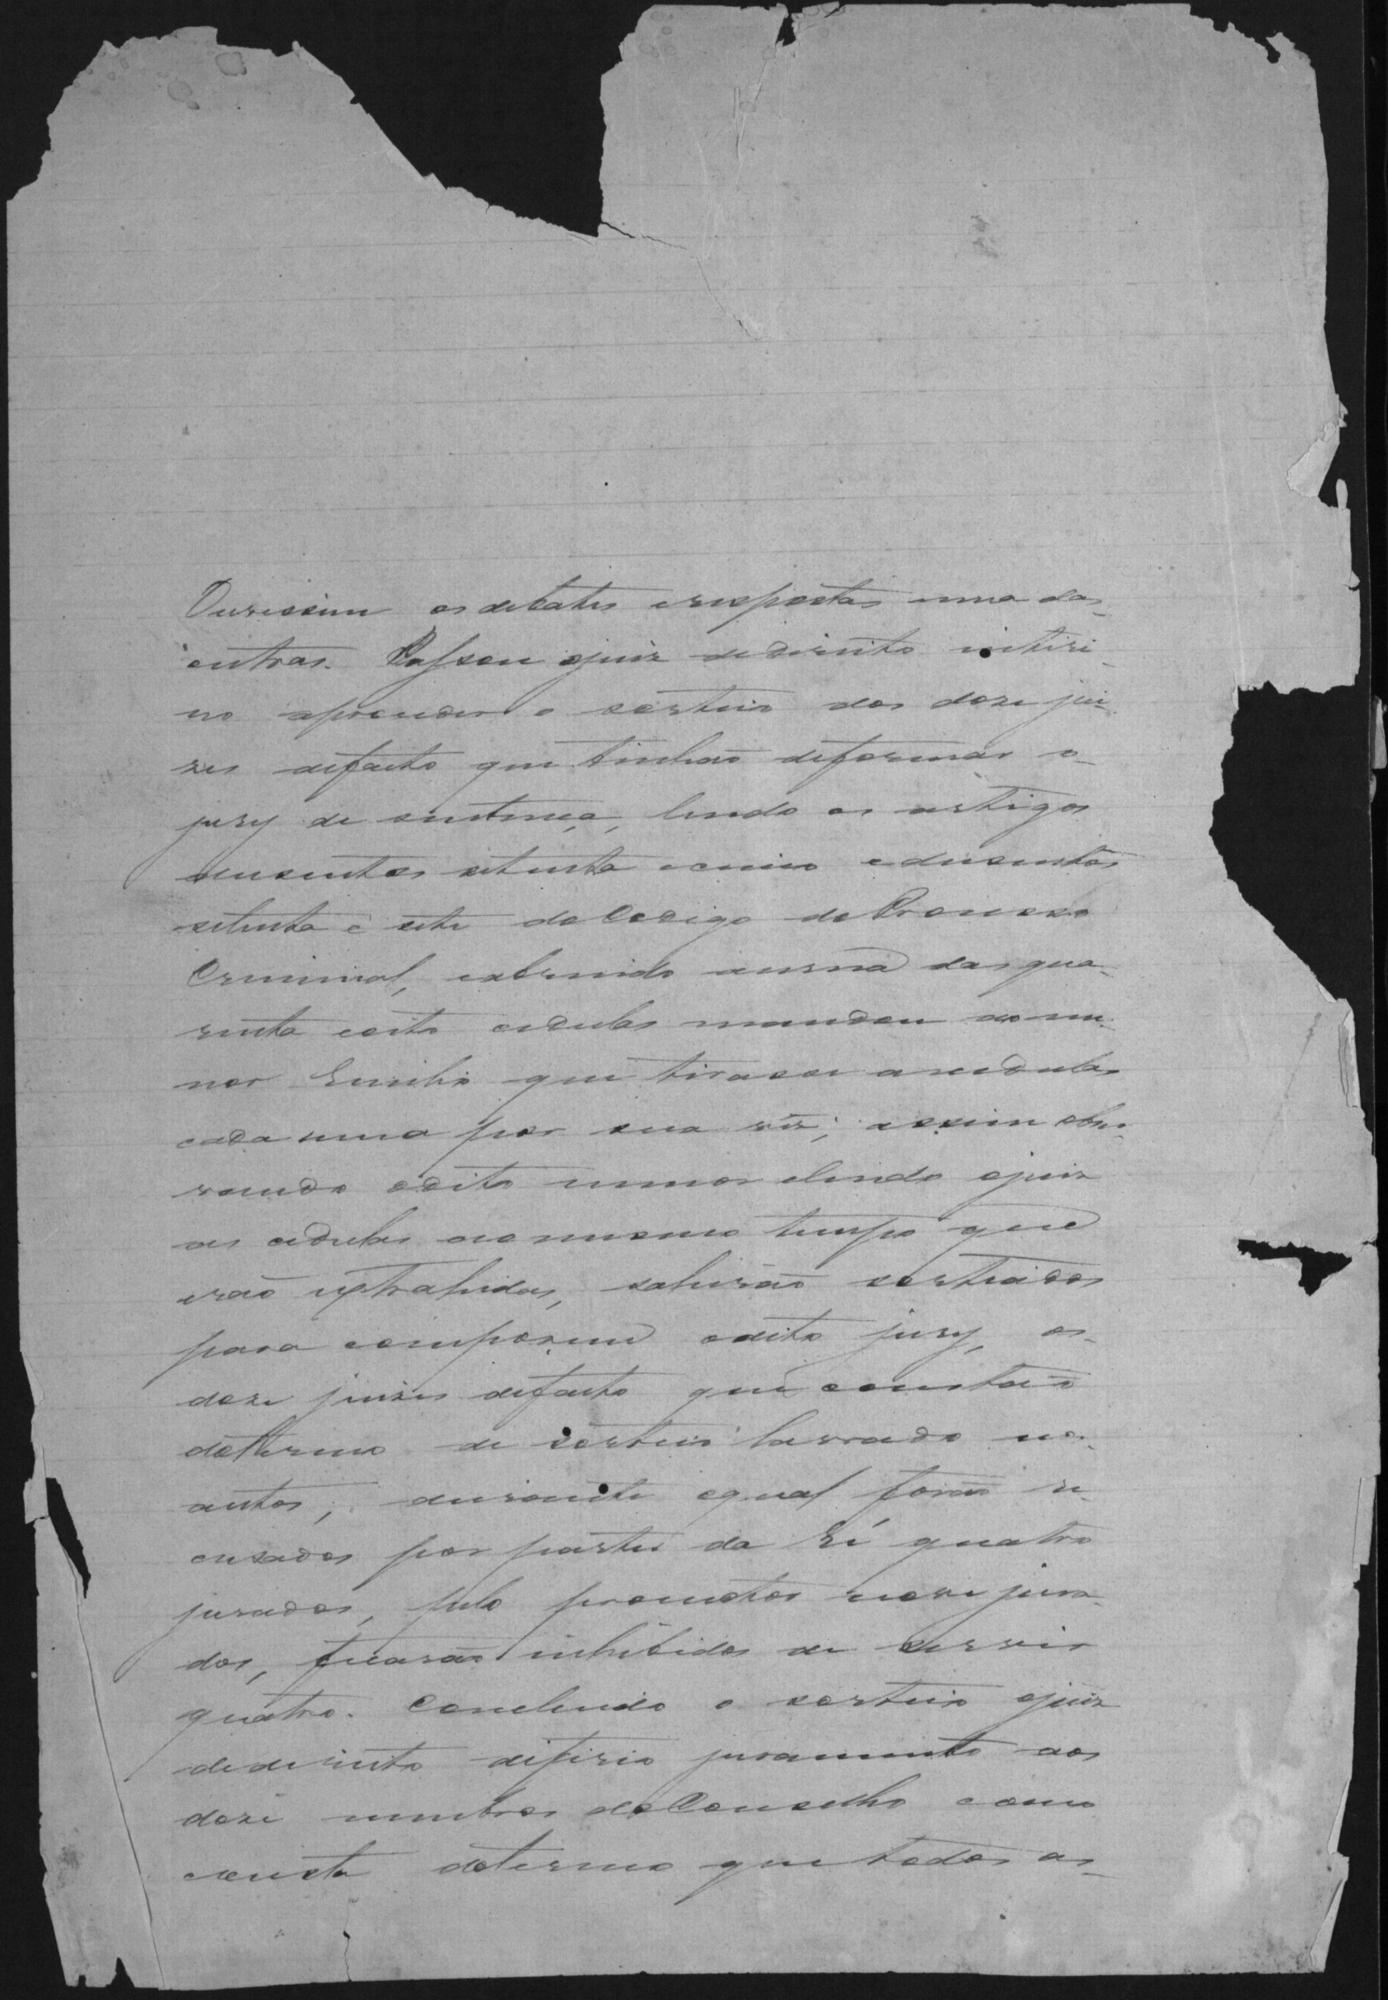 Ouvissem os debates e respostas uma das
outras. Passou o juiz de direito interi-
no a proceder o sorteio dos doze jui-
zes de facto que tinhão de formar o
jury de sentença, lendo os artigos
dusentos setenta e cinco e dusentos
setenta e sete do Codigo do Processo
Criminal, e abrindo a urna das qua-
renta e oito cedulas mandou ao me-
nor Emilio que tirasse as cedulas
cada uma por sua vez; e assim obser-
vando o dito menor e lendo o juiz
as cedulas ao mesmo tempo que
erão extrahidas, sahirão sorteados
para comporem o dito jury, os
doze juizes de facto que constão
do termo de sorteio lavrado nos
autos, durante o qual forão re-
cusados por parte da Ré quatro
jurados, pelo promotor nove jura-
dos, ficarão inhibidos de servir
quatro. Concluido o sorteio o juiz
de direito deferio juramento aos
doze membros do Conselho como
consta do termo que todos as-